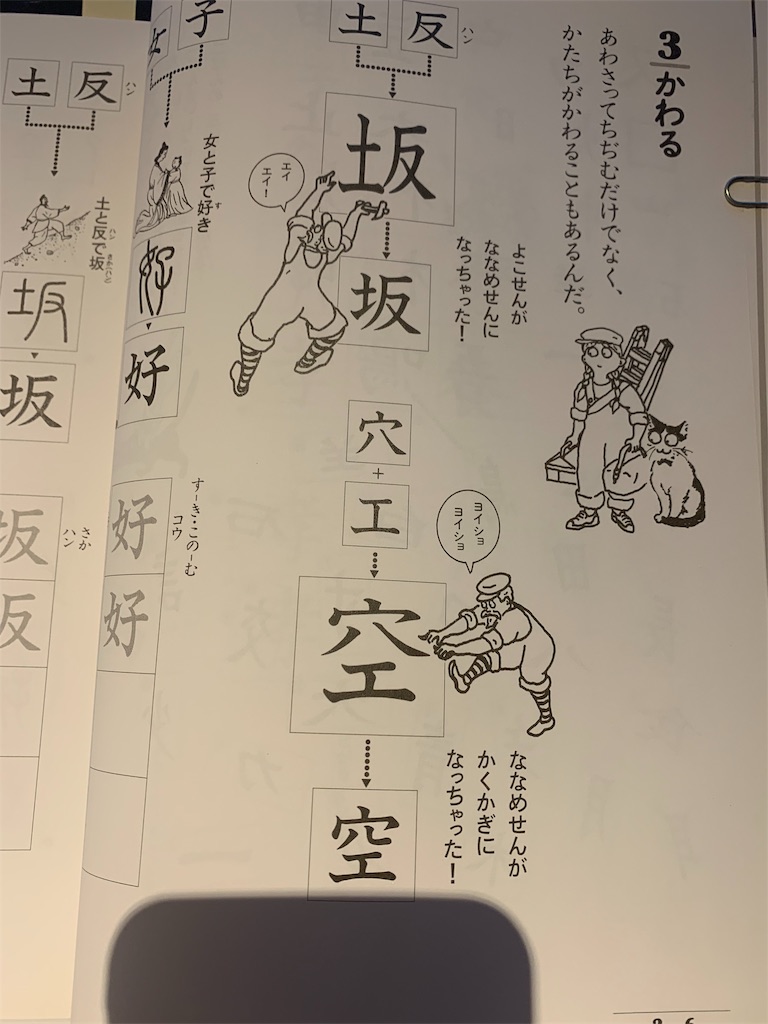 3 かわる
あわさってちぢむだけでなく、
かたちがかわることもあるんだ。
土 反
ハン
坂
エイ
エイ!
坂
よこせんが
ななめせんに
なっちゃった!
穴
+
工
空
ヨイショ
ヨイショ
空
ななめせんが
かくかぎに
なっちゃった!
女 子
女と子で好き
す
好
好
す-き・この-む
コウ
好
好
土 反
ハン
土と反で坂
ハン
さか(ハン)
坂
坂
さか
ハン
坂
坂